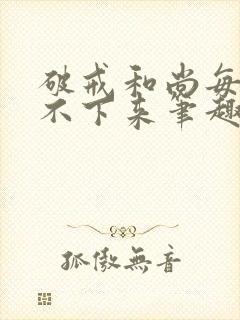 破戒和尚每
不下来笔趣
孤傲無音